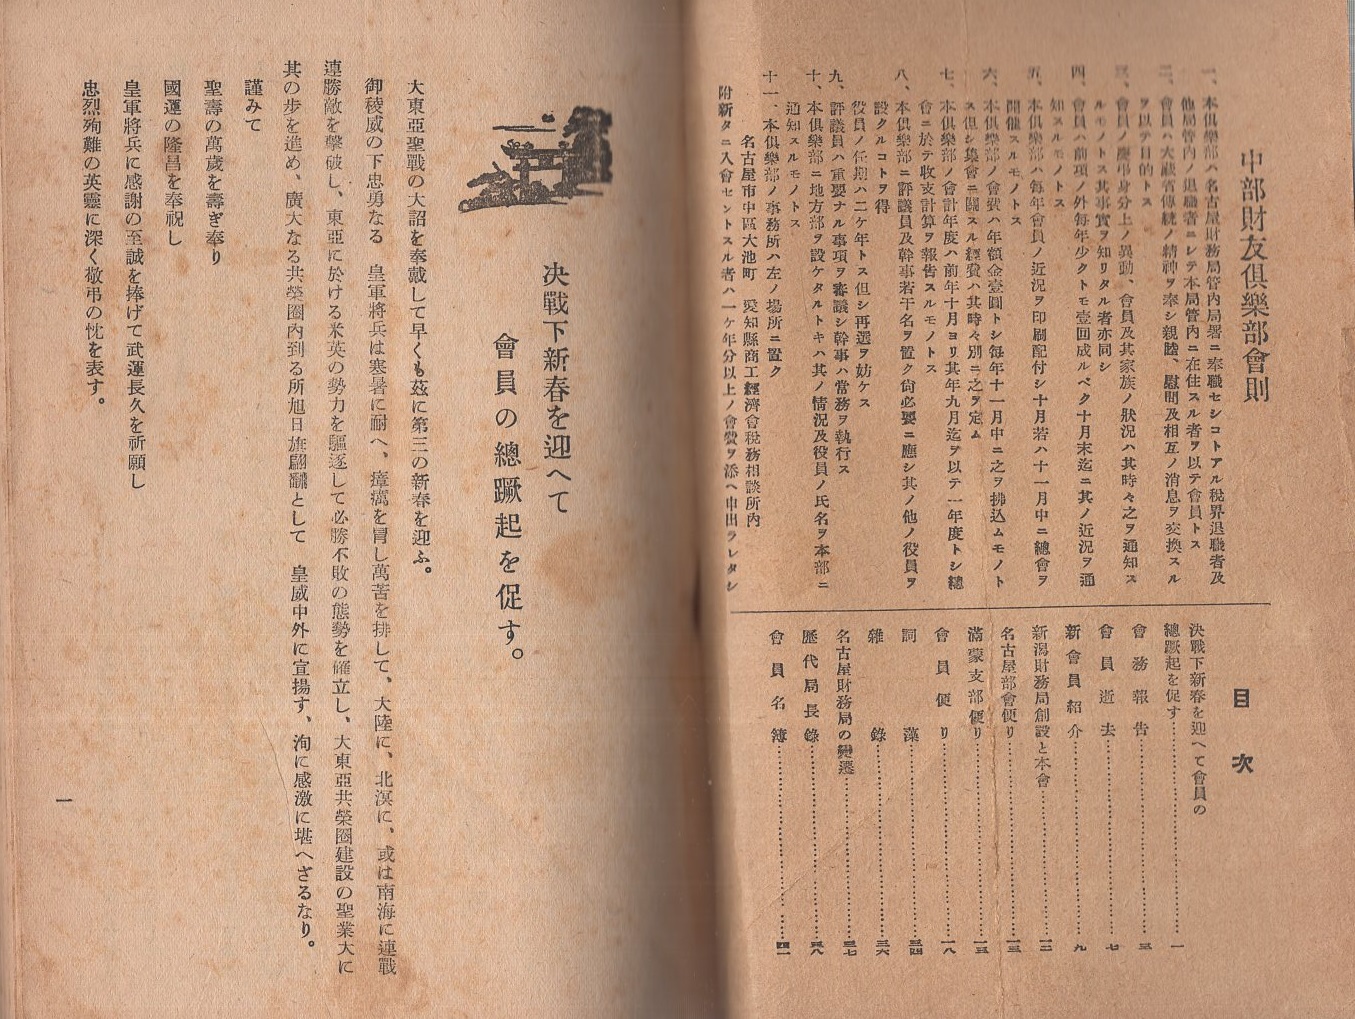 中部財友俱樂部會則
一、本俱樂部ハ名古屋財務局管內局署ニ奉職セシコトアル稅界退職者及
他局管內ノ退職者ニシテ本局管內ニ在住スル者ヲ以テ會員トス
二、會員ハ大藏省傳統ノ精神ヲ奉シ親睦、慰問及相互ノ消息ヲ交換スル
ヲ以テ目的トス
三、會員ノ慶弔身分上ノ異動、會員及其家族ノ狀況ハ其時々之ヲ通知ス
ルモノトス其事實ヲ知リタル者亦同シ
四、會員ハ前項ノ外每年少クトモ壹回成ルベク十月末迄ニ其ノ近況ヲ通
知スルモノトス
五、本俱樂部ハ每年會員ノ近況ヲ印刷配付シ十月若ハ十一月中ニ總會ヲ
開催スルモノトス
六、本俱樂部ノ會費ハ年額金壹圓トシ每年十一月中ニ之ヲ拂込ムモノト
ス但シ集會ニ關スル經費ハ其時々別ニ之ヲ定ム
七、本俱樂部ノ會計年度ハ前年十月ヨリ其年九月迄ヲ以テ一年度トシ總
會ニ於テ收支計算ヲ報告スルモノトス
八、本俱樂部ニ評議員及幹事若干名ヲ置ク尙必要ニ應シ其ノ他ノ役員ヲ
設クルコトヲ得
役員ノ任期ハ二ケ年トス但シ再選ヲ妨ケス
九、評議員ハ重要ナル事項ヲ審議シ幹事ハ常務ヲ執行ス
十、本俱樂部ニ地方部ヲ設ケタルトキハ其ノ情況及役員ノ氏名ヲ本部ニ
通知スルモノトス
十一、本俱樂部ノ事務所ハ左ノ場所ニ置ク
名古屋市中區大池町 愛知縣商工經濟會稅務相談所內
附新タニ入會セントスル者ハ一ケ年分以上ノ會費ヲ添ヘ申出ラレタシ
目次
決戰下新春を迎へて會員の
總蹶起を促す……一
會務報告……三
會員逝去……七
新會員紹介……九
新潟財務局創設と本會……一二
名古屋部會便り……一三
滿蒙支部便り……一五
會員便り……一八
詞藻……三四
雜錄……三六
名古屋財務局の變遷……三七
歷代局長錄……三八
會員名簿……四一
決戰下新春を迎へて
會員の總蹶起を促す。
大東亞聖戰の大詔を奉戴して早くも玆に第三の新春を迎ふ。
御稜威の下忠勇なる 皇軍將兵は寒暑に耐へ、瘴癘を冒し萬苦を排して、大陸に、北溟に、或は南海に連戰
連勝敵を擊破し、東亞に於ける米英の勢力を驅逐して必勝不敗の態勢を確立し、大東亞共榮圈建設の聖業大に
其の步を進め、廣大なる共榮圈內到る所旭日旗翩飜として 皇威中外に宣揚す、洵に感激に堪へざるなり。
謹みて
聖壽の萬歲を壽ぎ奉り
國運の隆昌を奉祝し
皇軍將兵に感謝の至誠を捧げて武運長久を祈願し
忠烈殉難の英靈に深く敬弔の忱を表す。
一